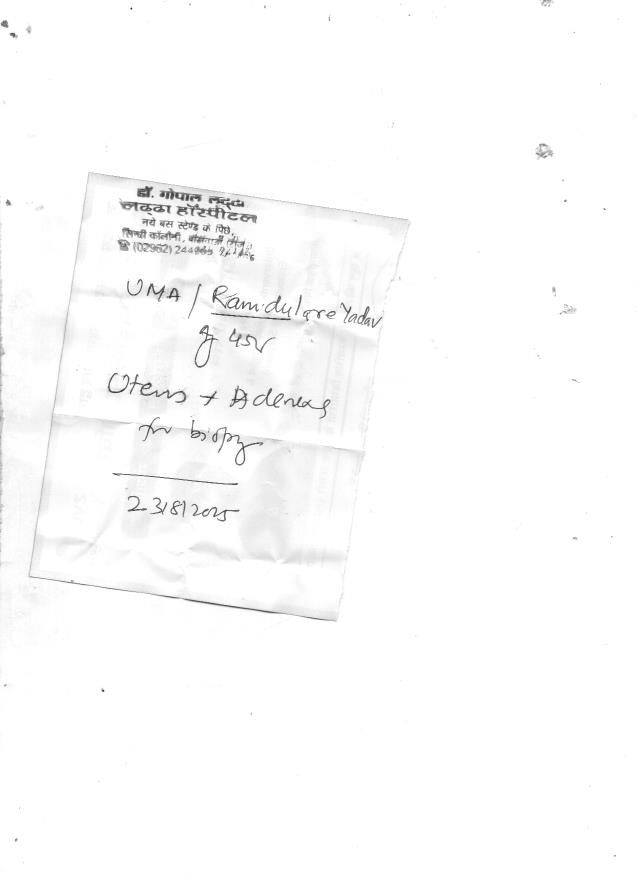 डॉ. गोपाल लढ्ढा
लढ्ढा हॉस्पीटल
नये बस स्टेण्ड के पिछे,
सिन्धी कॉलोनी,
☎ (02962)
UMA / Ramdulare Yadav
45
Uterus + Adenexa
for biopsy
23/8/2025